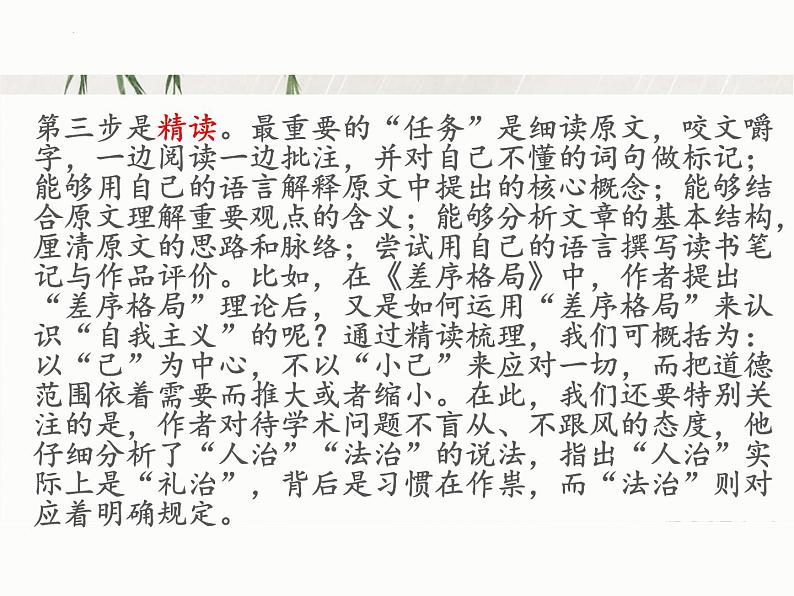 第三步是精读。最重要的“任务”是细读原文，咬文嚼
字，一边阅读一边批注，并对自己不懂的词句做标记；
能够用自己的语言解释原文中提出的核心概念；能够结
合原文理解重要观点的含义；能够分析文章的基本结构，
厘清原文的思路和脉络；尝试用自己的语言撰写读书笔
记与作品评价。比如，在《差序格局》中，作者提出
“差序格局”理论后，又是如何运用“差序格局”来认
识“自我主义”的呢？通过精读梳理，我们可概括为：
以“己”为中心，不以“小己”来应对一切，而把道德
范围依着需要而推大或者缩小。在此，我们还要特别关
注的是，作者对待学术问题不盲从、不跟风的态度，他
仔细分析了“人治”“法治”的说法，指出“人治”实
际上是“礼治”，背后是习惯在作祟，而“法治”则对
应着明确规定。